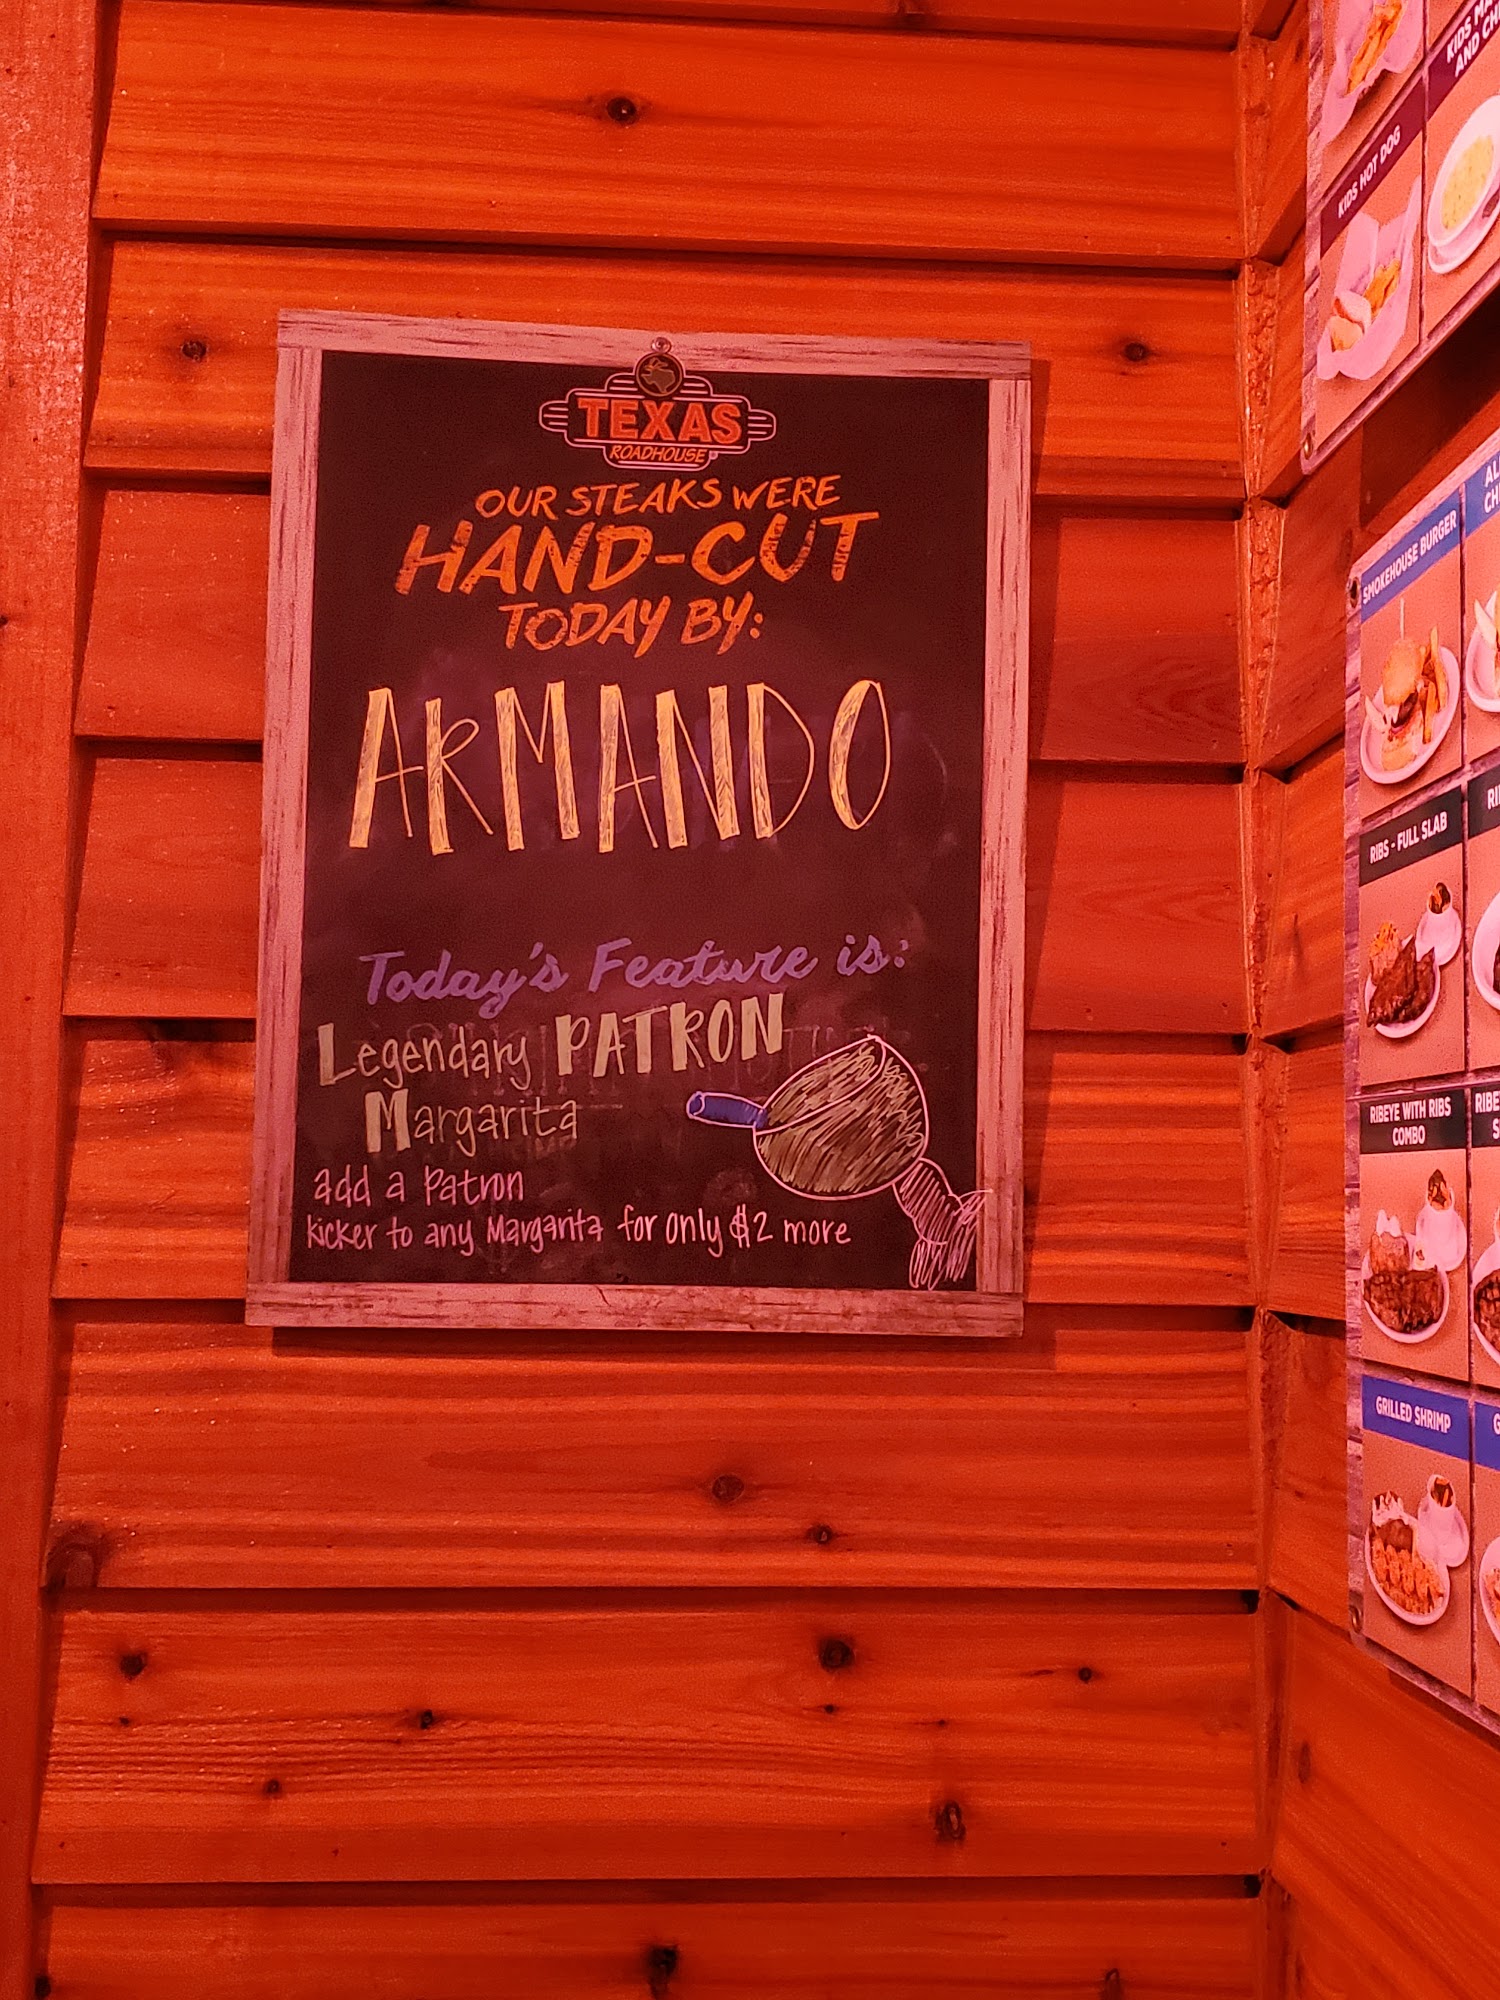 TEXAS
ROADHOUSE
OUR STEAKS WERE
HAND-CUT
TODAY BY:
ARMANDO
Today's Feature is:
Legendary PATRON
Margarita
add a Patron
kicker to any Margarita for only $2 more
KIDS HOT DOG
AND
SMOKEHOUSE BURGER
RIBS - FULL SLAB
RIBEYE WITH RIBS
COMBO
GRILLED SHRIMP